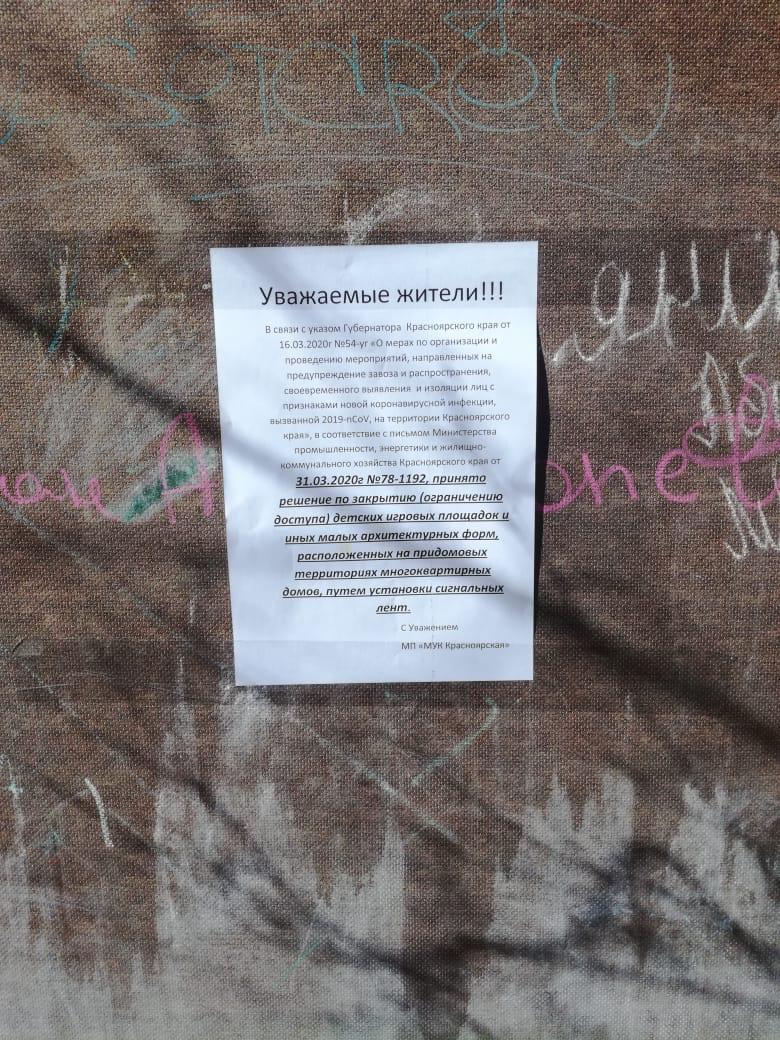 SOTCIROW
Уважаемые жители!!!
В связи с указом Губернатора Красноярского края от
16.03.2020г №54-уг «О мерах по организации и
проведению мероприятий, направленных на
предупреждение завоза и распространения,
своевременного выявления и изоляции лиц с
признаками новой коронавирусной инфекции,
вызванной 2019-nCoV, на территории Красноярского
края», в соответствие с письмом Министерства
промышленности, энергетики и жилищно-
коммунального хозяйства Красноярского края от
31.03.2020г №78-1192, принято
решение по закрытию (ограничению
доступа) детских игровых площадок и
иных малых архитектурных форм,
расположенных на придомовых
территориях многоквартирных
домов, путем установки сигнальных
лент.
С Уважением
МП «МУК Красноярская»